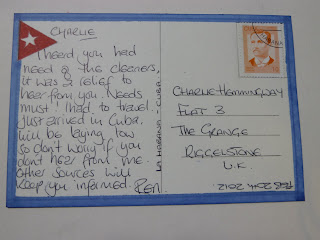 CHARLIE
I heard, you had
need of the cleaners,
it was a relief to
hear from you. Needs
must! I had to travel.
Just arrived in Cuba.
Will be laying low
so don't worry if you
dont hear from me.
Other sources will
keep you informed.
LA HABANA - CUBA
CHARLIE HEMMINGWAY
FLAT 3
THE GRANGE
RIGGELSTONE
U.K.
FEB 20th, 2012.